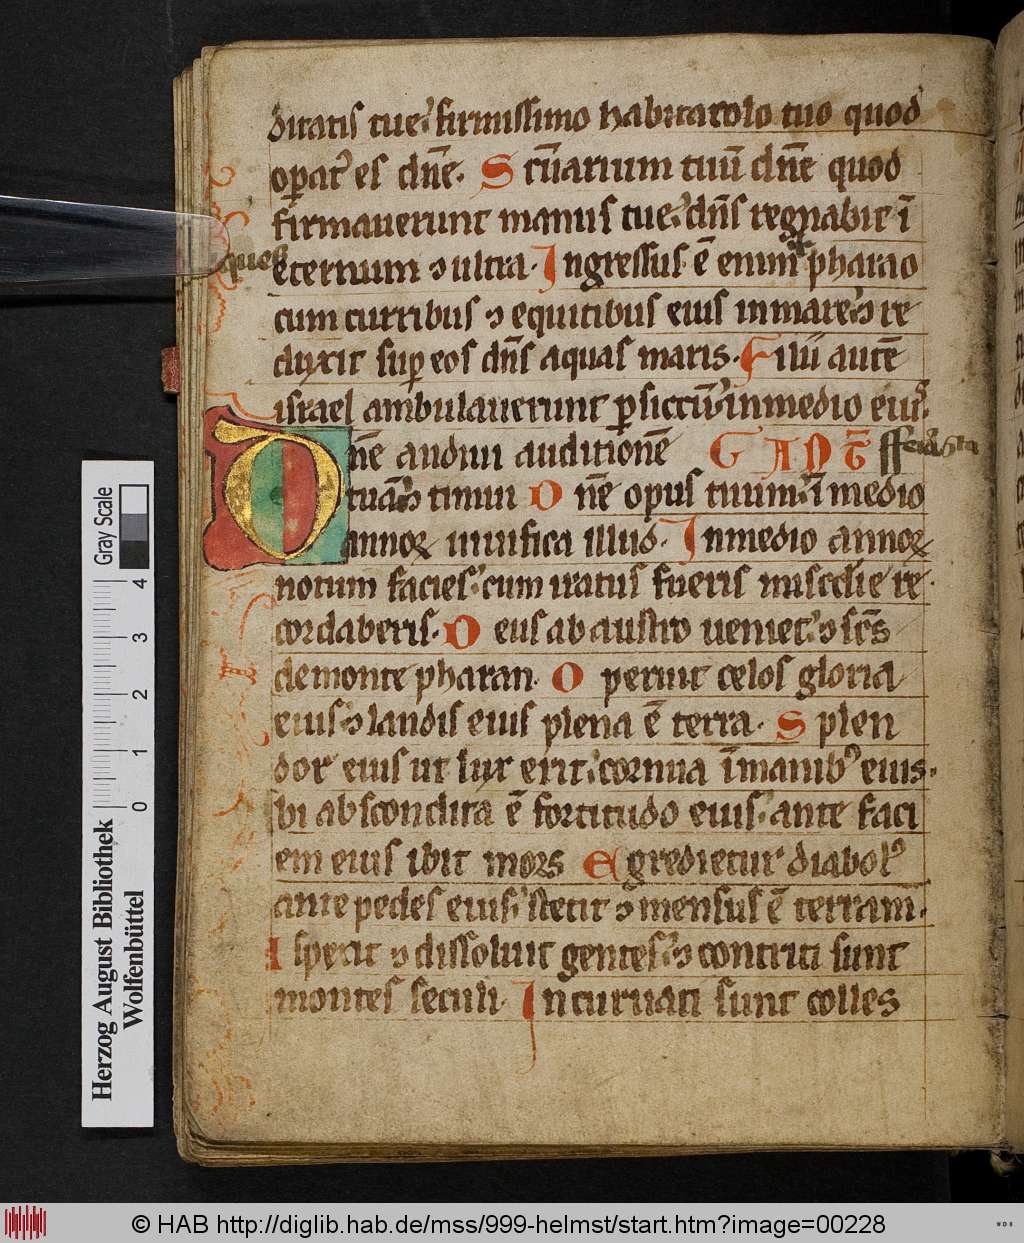 ditatis tue. firmissimo habitatolo tuo quod
opat' es dn̄e. S cn̄arium tuū dn̄e quod
firmauerunt manus tue. dn̄s regnabit ī
eternum ⁊ ultra. Ingressus ē enim pharao
cum curribus ⁊ equitibus eius in mare. ⁊ re
duxit sup eos dn̄s aquas maris. Filii autē
israel ambulauerunt p siccū. in medio eius.
Dn̄e audiui auditionē CANT̄
tuā. ⁊ timui Dn̄e opus tuum. ī medio
annoꝝ uiuifica illud. In medio annoꝝ
notum facies. cum iratus fueris miscd̄ie re
cordaberis. Deus ab austro ueniet. ⁊ sc̄s
de monte pharan. Operuit celos gloria
eius. ⁊ laudis eius plena ē terra. Splen
dor eius ut lux erit. cornua ī manibꝰ eius.
Ibi abscondita ē fortitudo eius. ante faci
em eius ibit mors Egredietur diabolꝰ
ante pedes eius. stetit ⁊ mensus ē terram.
Aspexit ⁊ dissoluit gentes. ⁊ contriti sunt
montes seculi. Incuruati sunt colles
Herzog August Bibliothek
Wolfenbüttel
0 1 2 3 4
Gray Scale
© HAB http://diglib.hab.de/mss/999-helmst/start.htm?image=00228